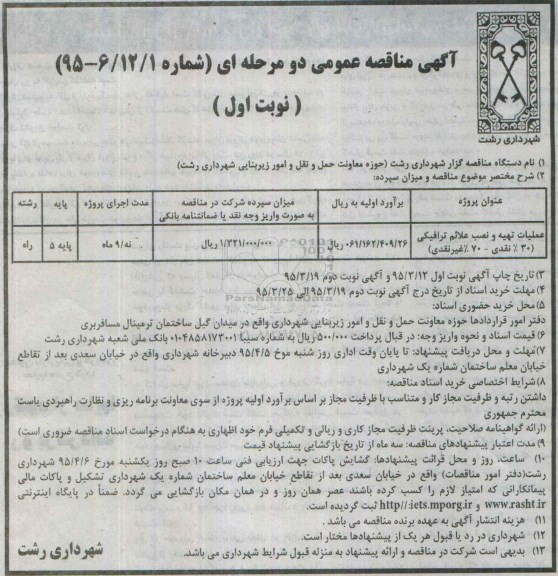 آگهی مناقصه عمومی دو مرحله ای (شماره ۹۵-۶/۱۲/۱)
( نوبت اول )
شهرداری رشت
۱) نام دستگاه مناقصه گزار شهرداری رشت (حوزه معاونت حمل و نقل و امور زیربنایی شهرداری رشت)
۲) شرح مختصر موضوع مناقصه و میزان سپرده:
عنوان پروژه | برآورد اولیه به ریال | میزان سپرده شرکت در مناقصه به صورت واریز وجه نقد یا ضمانتنامه بانکی | مدت اجرای پروژه | پایه | رشته
عملیات تهیه و نصب علائم ترافیکی (۳۰ ٪ نقدی - ۷۰ ٪غیرنقدی) | ۲۶/۴۰۹/۱۶۲/۰۶۱ ریال | ۱/۳۲۱/۰۰۰/۰۰۰ ریال | نه/۹ ماه | پایه ۵ | راه
۳)تاریخ چاپ آگهی نوبت اول ۹۵/۳/۱۲ و آگهی نوبت دوم ۹۵/۳/۱۹
۴)مهلت خرید اسناد از تاریخ درج آگهی نوبت دوم ۹۵/۳/۱۹الی ۹۵/۳/۲۵
۵)محل خرید حضوری اسناد:
دفتر امور قراردادها حوزه معاونت حمل و نقل و امور زیربنایی شهرداری واقع در میدان گیل ساختمان ترمینال مسافربری
۶) قیمت اسناد و نحوه واریز وجه: در قبال پرداخت ۵۰۰/۰۰۰ ریال به شماره سیبا ۰۱۰۴۸۵۸۱۷۳۰۰۱ بانک ملی شعبه شهرداری رشت
۷)مهلت و محل دریافت پیشنهاد: تا پایان وقت اداری روز شنبه موخ ۹۵/۴/۵ دبیرخانه شهرداری واقع در خیابان سعدی بعد از تقاطع
خیابان معلم ساختمان شماره یک شهرداری
۸)شرایط اختصاصی خرید اسناد مناقصه:
داشتن رتبه و ظرفیت مجاز کار و متناسب با ظرفیت مجاز بر اساس برآورد اولیه پروژه از سوی معاونت برنامه ریزی و نظارت راهبردی یاست
محترم جمهوری
(ارائه گواهینامه صلاحیت، پرینت ظرفیت مجاز کاری و ریالی و تکمیلی فرم خود اظهاری به هنگام درخواست اسناد مناقصه ضروری است)
۹) مدت اعتبار پیشنهادهای مناقصه: سه ماه از تاریخ بازگشایی پیشنهاد قیمت
۱۰) ساعت، روز و محل قرائت پیشنهادها: گشایش پاکات جهت ارزیابی فنی ساعت ۱۰ صبح روز یکشنبه مورخ ۹۵/۴/۶ شهرداری
رشت(دفتر امور مناقصات) واقع در خیابان سعدی بعد از تقاطع خیابان معلم ساختمان شماره یک شهرداری تشکیل و پاکات مالی
پیمانکارانی که امتیاز لازم را کسب کرده باشند عصر همان روز و در همان مکان بازگشایی می گردد. ضمناً در پایگاه اینترنتی
www.rasht.ir و http//:iets.mporg.ir ثبت گردیده است.
۱۱) هزینه انتشار آگهی به عهده برنده مناقصه می باشد .
۱۲) شهرداری در رد یا قبول هر یک از پیشنهادها مختار است.
۱۳) بدیهی است شرکت در مناقصه و ارائه پیشنهاد به منزله قبول شرایط شهرداری می باشد.
شهرداری رشت